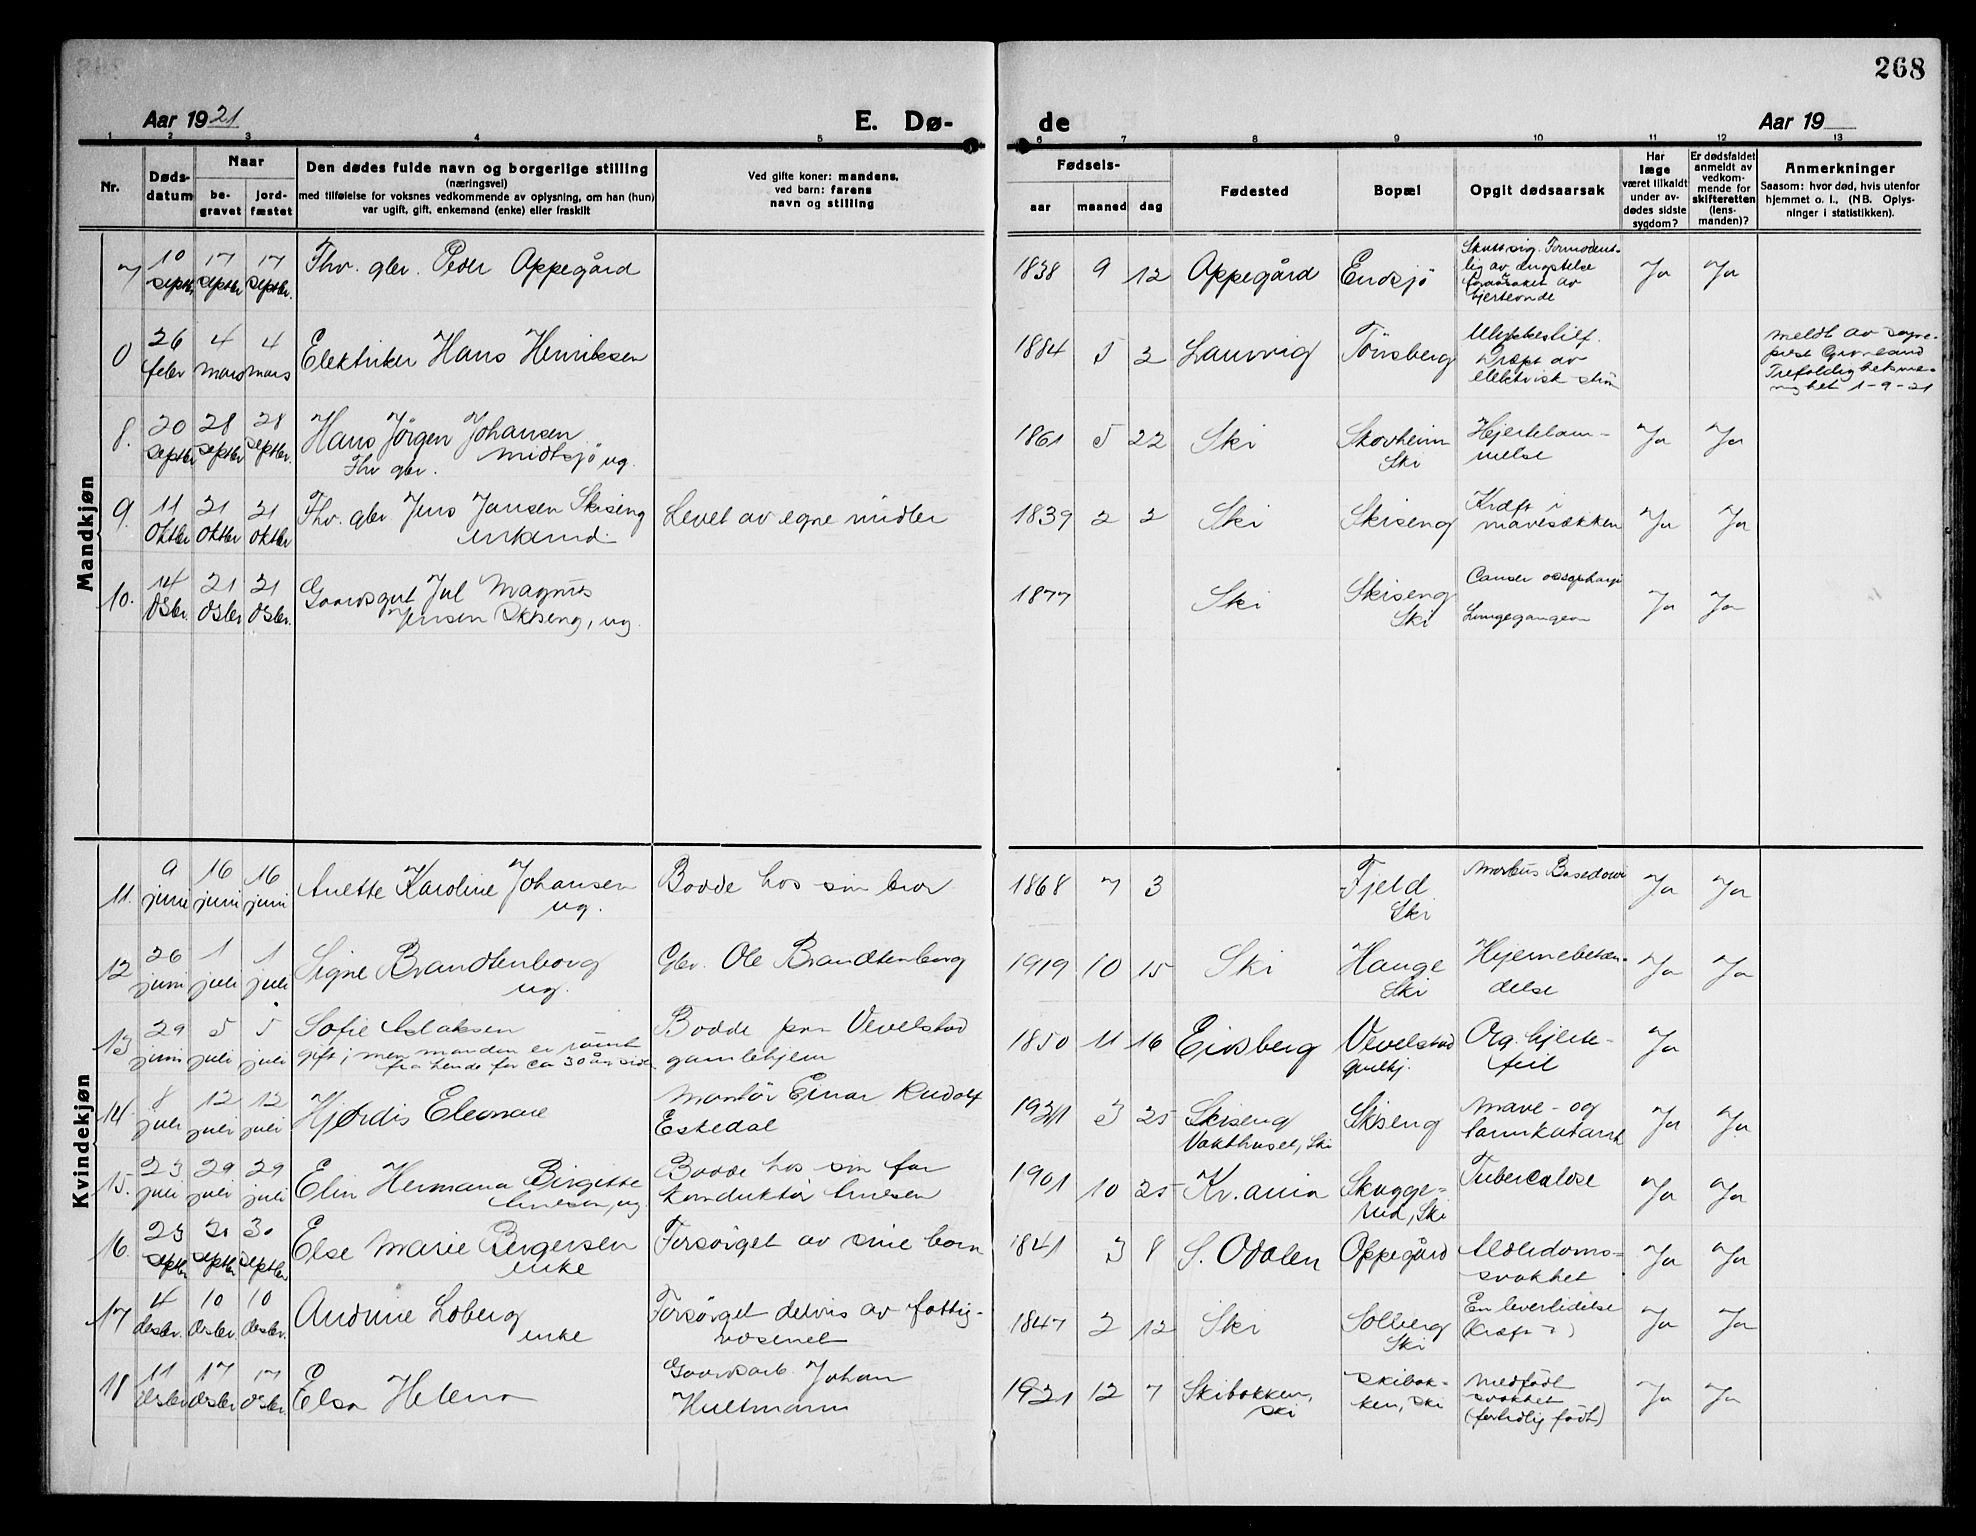 268
Aar 1921
E. Dø-
de
Aar 19
1 2 3 4 5 6 7 8 9 10 11 12 13
Nr.
Døds-
datum
Naar
be-
gravet
jord-
fæstet
Den dødes fulde navn og borgerlige stilling
(næringsvei)
med tilføielse for voksnes vedkommende av oplysning, om han (hun)
var ugift, gift, enkemand (enke) eller fraskilt
Ved gifte koner: mandens,
ved barn: farens
navn og stilling
Fødsels-
aar
maaned
dag
Fødested
Bopæl
Opgit dødsaarsak
Har
læge
været tilkaldt
under av-
dødes sidste
sygdom?
Er dødsfaldet
anmeldt av
vedkom-
mende for
skifteretten
(lens-
manden)?
Anmerkninger
Saasom: hvor død, hvis utenfor
hjemmet o. l., (NB. Oplys-
ninger i statistikken).
Mandkjøn
7 10 septbr 17 septbr 17 septbr. Fhv. gbr. Peder Oppegård 1838 9 12 Oppegård Endsjø
lig av engstelse
foraarsaket av
hjerteonde
Ja Ja
0 26 febr 4 mars 4 mars Elektriker Hans Henriksen 1884 5 3 Laurvig Tønsberg Ulykkestilf.
Dræpt av
elektrisk strøm
meldt av sogne-
prest Grønland
Trefoldighetsme-
nighet 1-9-21
8. 20 septbr 28 septbr 28 septbr. Hans Jörgen Johansen
Midtsjø ug.
Fhv gbr.
1861 5 22 Ski Skovheim
Ski
Hjertelam-
melse
Ja Ja
9. 11 oktbr 21 oktbr 21 oktbr Fhv. gbr Jens Jansen Skiseng
enkemd.
Levet av egne midler 1839 2 2 Ski Skiseng Kræft i
mavesækken
Ja Ja
10. 14 dsbr. 21 dsbr 21 dsbr. Gaardsgut Jul Magnus
Jensen Skiseng, ug.
1877 Ski Skiseng
Ski
Cancer
Lungegangren
Ja Ja
Kvindekjøn
11. 9 juni 16 juni 16 juni Anette Karoline Johansen
ug.
Bodde hos sin bror 1868 7 3 Fjeld
Ski
Morbus Basedowi Ja Ja
12 26 juni 1 juli 1 juli Signe Brandtenborg
ug.
Gbr. Ole Brandtenborg 1919 10 15 Ski Hauge
Ski
Hjernebetæn-
delse
Ja Ja
13 29 juni 5 juli 5 juli Sofie Aslaksen
gift; men manden er rømt
fra hende for ca 30 år sid.
Bodde paa Vevelstad
gamlehjem
1850 11 16 Eidsberg Vevelstad
gmlhj.
Org. hjerte-
feil
Ja
14. 8 juli 12 juli 12 juli Hjørdis Eleonore Montør Einar Rudolf
Eskedal
1921 3 25 Skiseng
Vakthuset, Ski
Skiseng Mave- og
tarmkatarrh
Ja Ja
15. 23 juli 29 juli 29 juli Elin Hermana Birgitte
Arnesen, ug.
Bodde hos sin far
konduktør Arnesen
1901 10 25 Kr.ania Skugge-
rud, Ski
Tuberculose Ja Ja
16. 23 septbr 30 septbr 30 septbr Else Marie Bergersen
enke
Forsørget av sine born 1841 3 8 S. Odalen Oppegård Alderdoms-
svakhet
Ja Ja
17 4 desbr. 10 desbr. 10 desbr. Andrine Loberg
enke
Forsørget delvis av fattig-
væsenet
1847 2 12 Ski Solberg
Ski
En leverlidelse
(kræft?)
Ja Ja
18 11 desbr 17 desbr 17 dsbr. Elsa Helena Gaardsarb. Johan
Hultmann
1921 12 7 Skibakken,
Ski
Skibak-
ken, Ski
Medfødt
svakhet
(fortidlig født)
Ja Ja